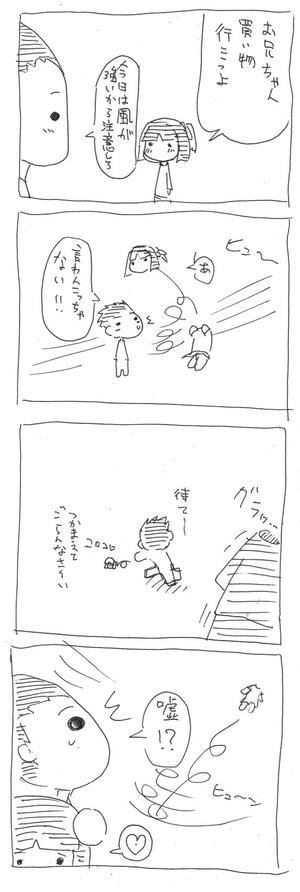 お兄ちゃん
買い物
行こっよ
今日は風が
強いから注意しろ
ヒュ〜
あ
言わんこっちゃ
ない!!
グラッ…
待て〜
つかまえて
ごらんなさ〜い
嘘
!?
ヒュ〜ン